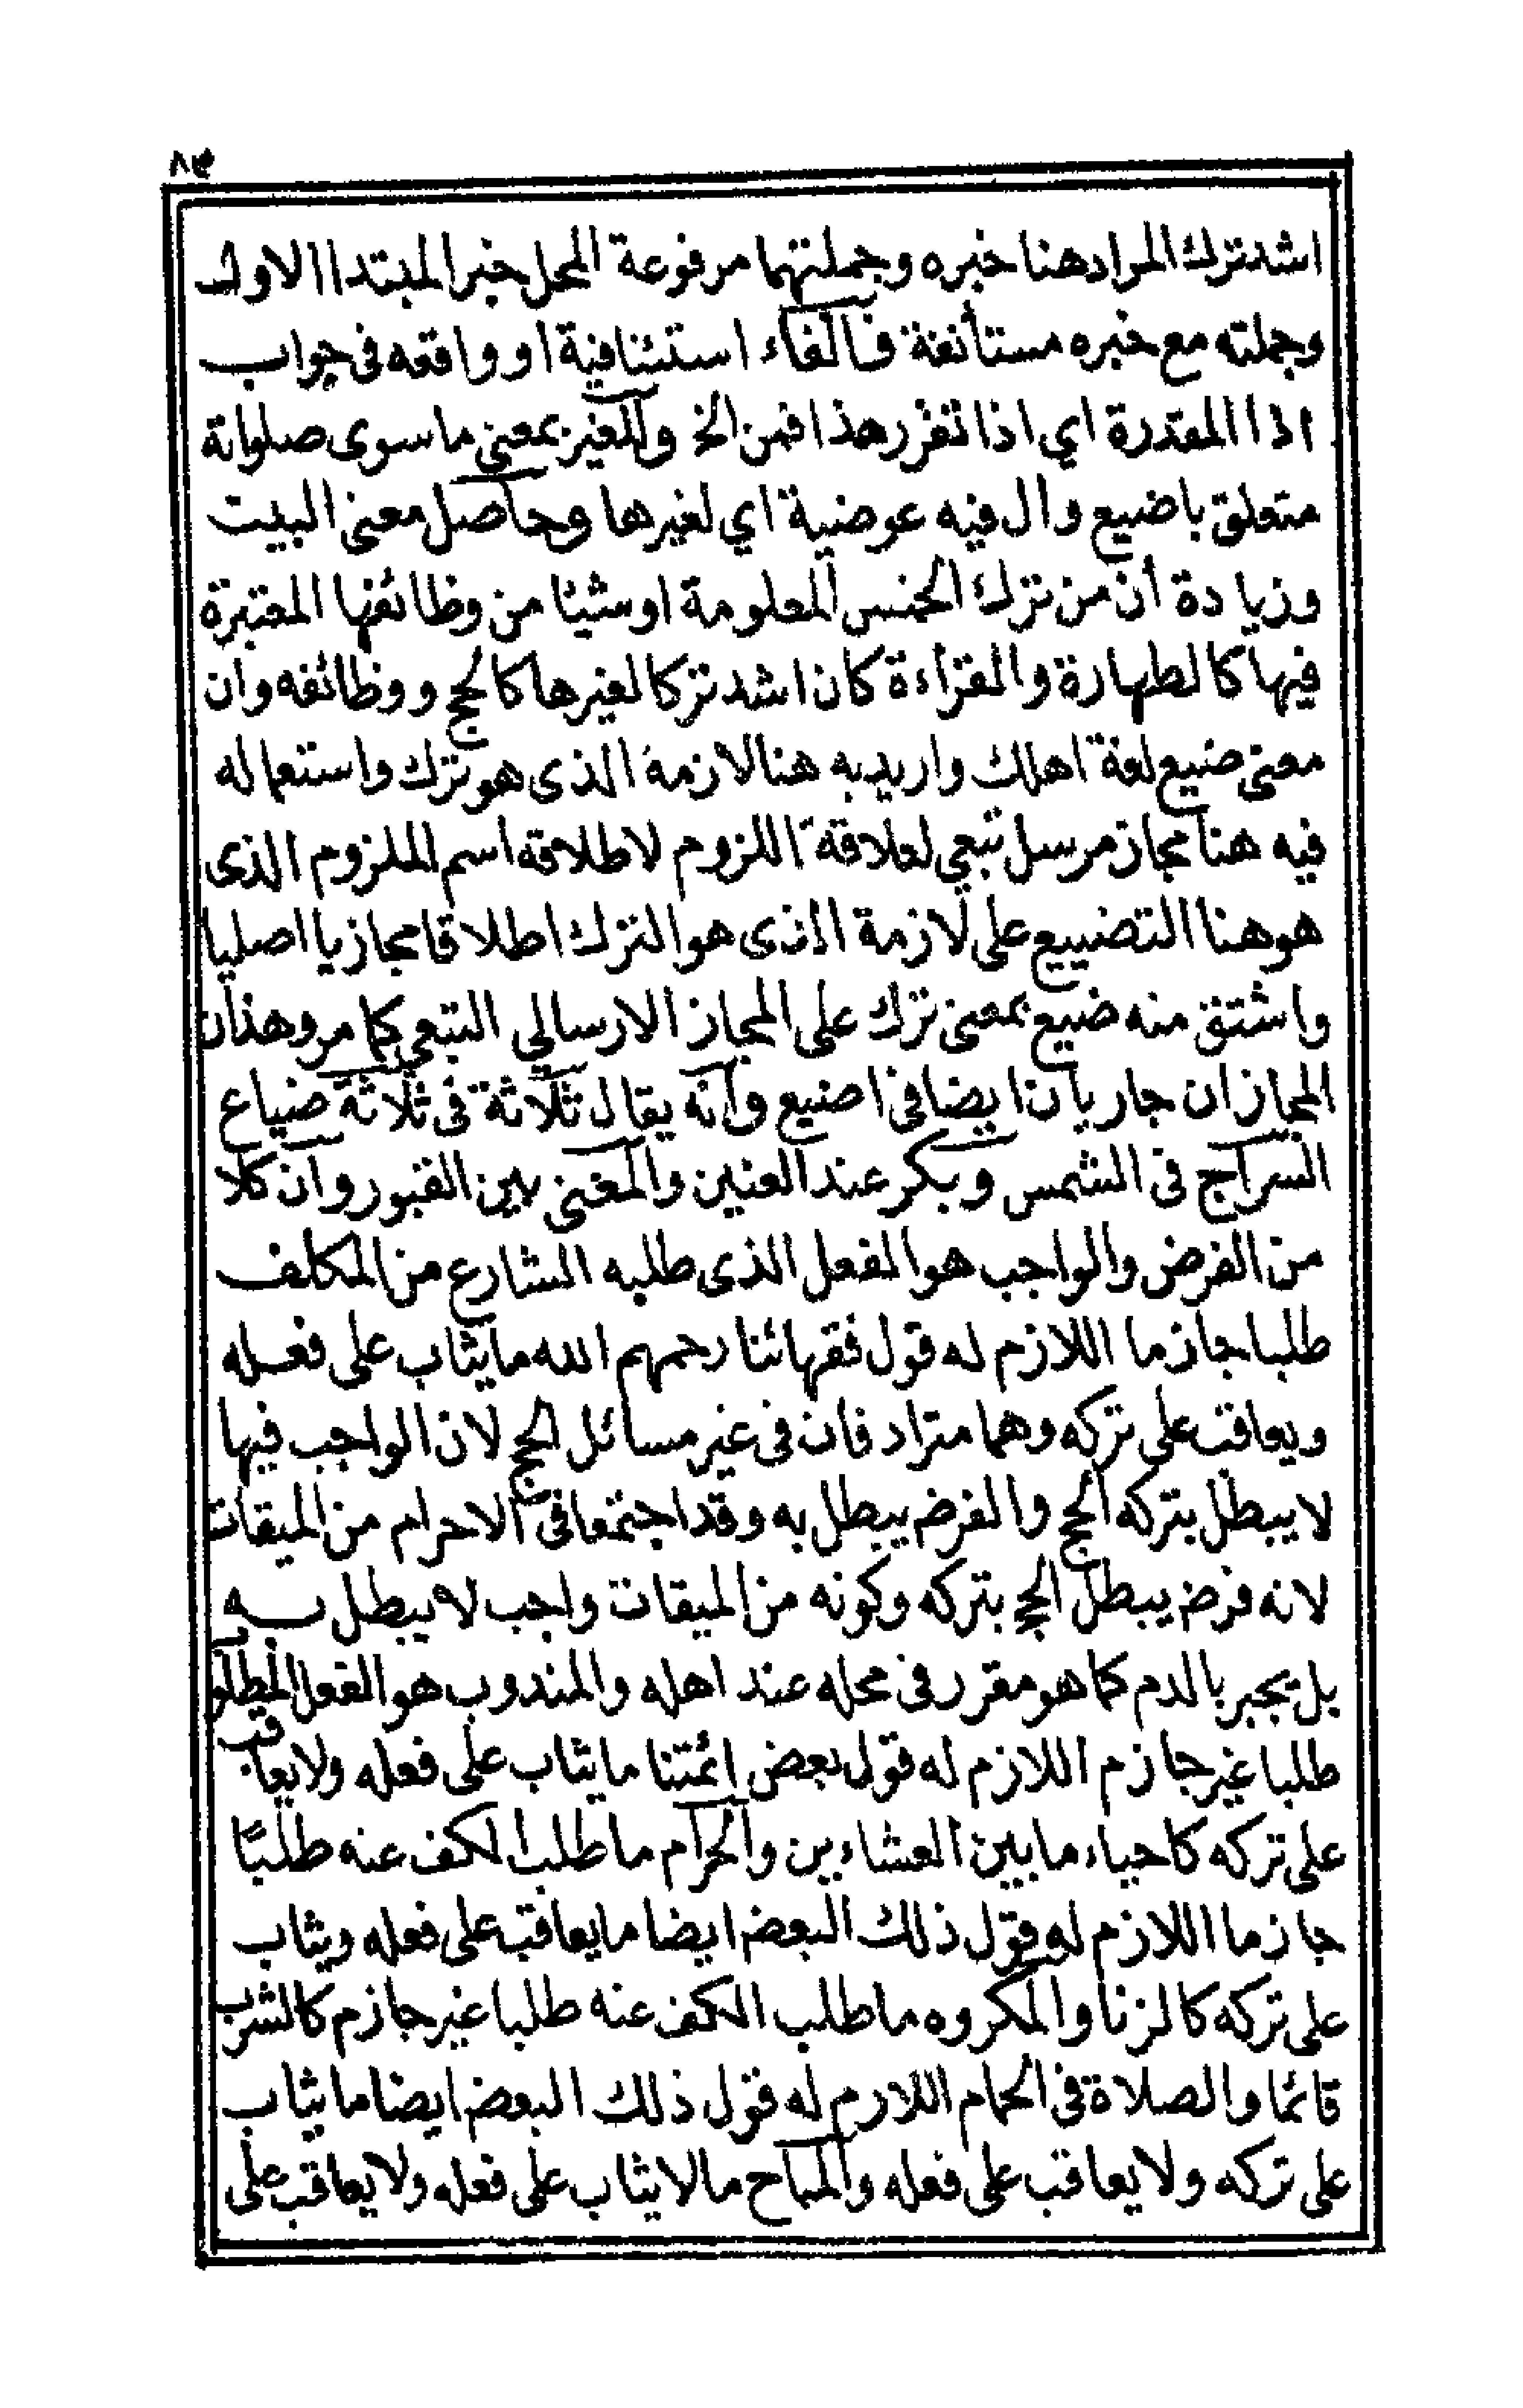 ٨٣
اشد ترك المراد هنا خبره وجملتهما مرفوعة المحل خبر المبتدا الاول
وجملته مع خبره مستأنفة فالفاء استئنافية او واقعه فى جواب
اذا المقدرة اي اذا تقرر هذا فمن الخ وللغير بمعنى ما سوى صلواته
متعلق باضيع وال فيه عوضية اي لغيرها وحاصل معنى البيت
وزيادة أن من ترك الخمس المعلومة او شيئا من وظائفها المعتبرة
فيها كالطهارة والقراءة كان اشد تركا لغيرها كالحج ووظائفه وان
معنى ضيع لغة اهلك واريد به هنا لازمه الذى هو ترك واستعماله
فيه هنا مجاز مرسل تبعي لعلاقة اللزوم لاطلاقه اسم الملزوم الذى
هو هنا التضييع على لازمة الذى هو الترك اطلاقا مجازيا اصليا
واشتق منه ضيع بمعنى ترك على المجاز الارسالي التبعي كما مر وهذان
المجازان جاريان ايضا فى اضيع وانه يقال ثلاثة فى ثلاثة ضياع
السراج فى الشمس وبكر عند العنين والمغنى بين القبور وان كلا
من الفرض والواجب هو الفعل الذى طلبه الشارع من المكلف
طلبا جازما اللازم له قول فقهائنا رحمهم الله ما يثاب على فعله
ويعاقب على تركه وهما مترادفان فى غير مسائل الحج لان الواجب فيها
لا يبطل بتركه الحج والفرض يبطل به وقد اجتمعا فى الاحرام من الميقات
لانه فرض يبطل الحج بتركه وكونه من الميقات واجب لا يبطل به
بل يجبر بالدم كما هو مقرر فى محله عند اهله والمندوب هو الفعل المطلوب
طلبا غير جازم اللازم له قول بعض ائمتنا ما يثاب على فعله ولا يعاقب
على تركه كاحياء ما بين العشاءين والحرام ما طلب الكف عنه طلبًا
جازما اللازم له قول ذلك البعض ايضا ما يعاقب على فعله ويثاب
على تركه كالزنا والمكروه ما طلب الكف عنه طلبا غير جازم كالشرب
قائما والصلاة فى الحمام اللازم له قول ذلك البعض ايضا ما يثاب
على تركه ولا يعاقب على فعله والمباح ما لا يثاب على فعله ولا يعاقب على